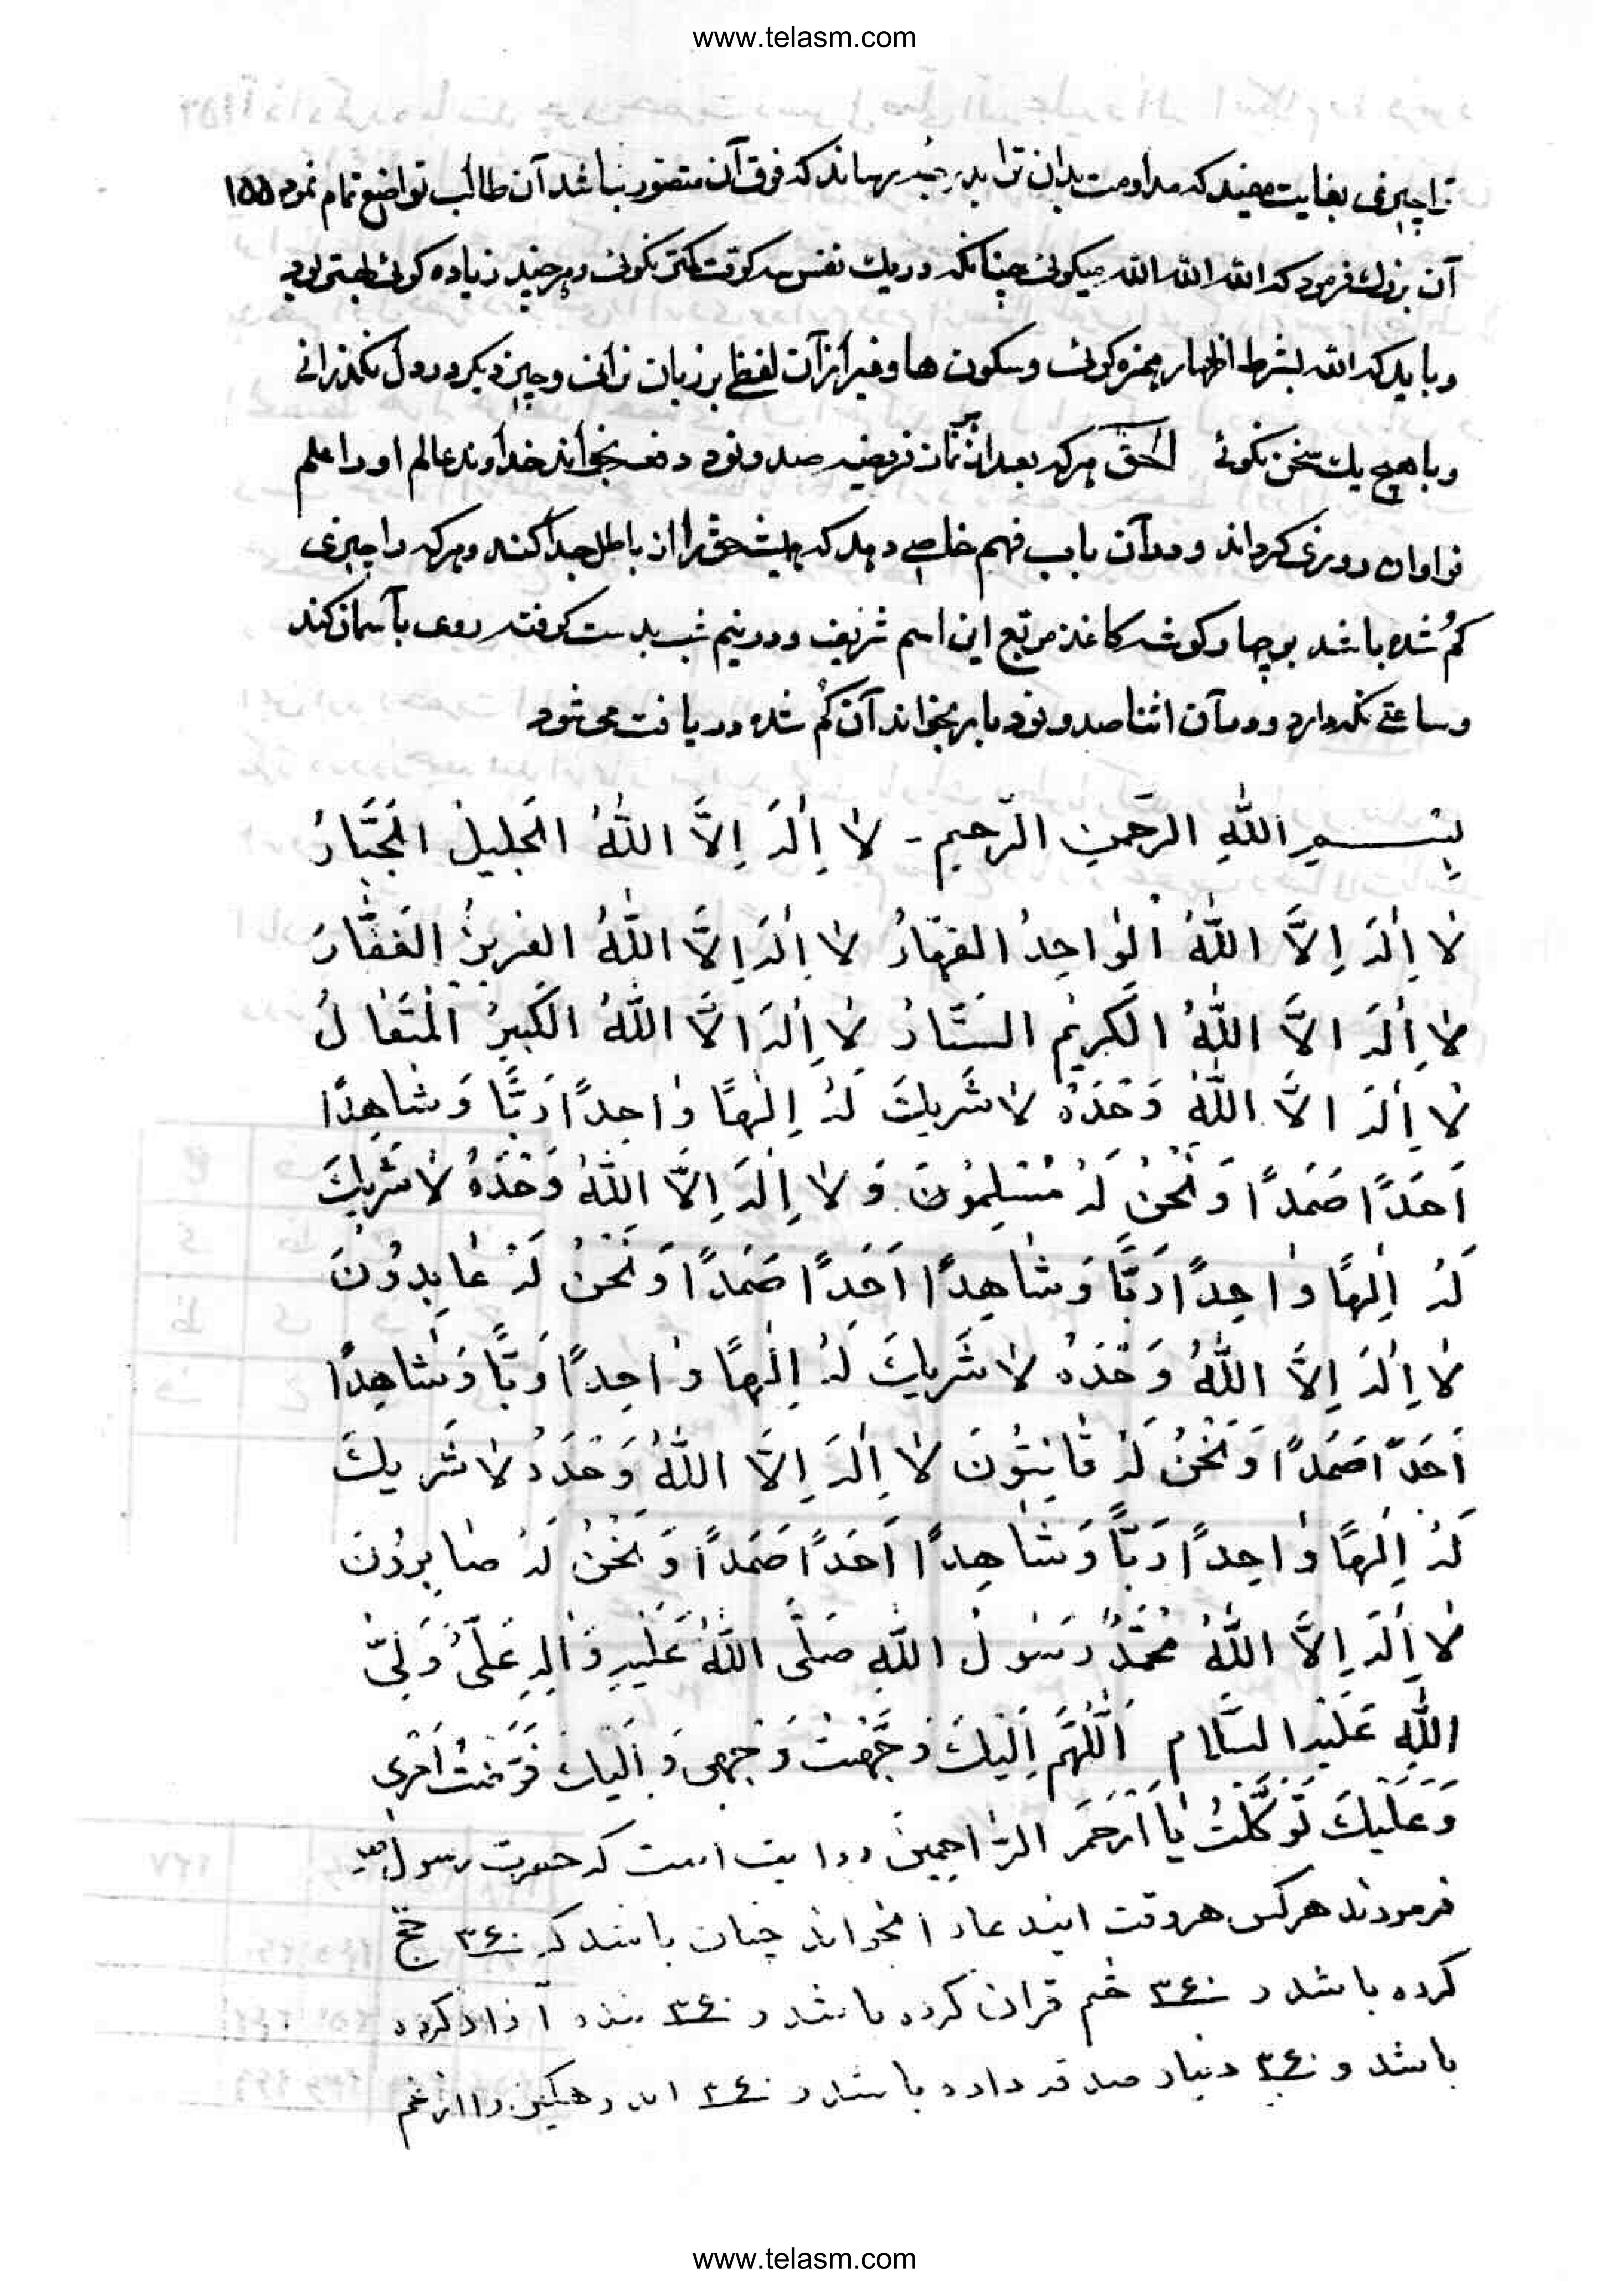 www.telasm.com
ترا چیزی بغایت مفید که مداومت بدان ترا بدرجه رساند که فوق آن متصور نباشد آن طالب تواضع تمام نمود ۱۵۵
آن بزرگ فرمود که الله الله الله میگوئی چنانکه در یک نفس سه کرت کمتر نگوئی و هر چند زیاده گوئی بهتر بود
و باید که الله بشرط اظهار همزه گوئی و سکون ها و غیر از آن لفظ بر زبان نرانی و چیز دیگر در دل نگذرانی
و با هیچ یک سخن نگوئی الحق هر که بعد از نماز فریضه صد و نود دفعه بخواند خداوند عالم او را علم
فراوان روزی گرداند و در آن باب فهم خاصی دهد که حق را از باطل جدا کند و هر که را چیزی
کم شده باشد بر چار گوشه کاغذ مربع این اسم شریف و در نیم شب بدست گرفته روی بآسمان کند
و ساعتی نگهدارد و در آن اثنا صد و نود بار بخواند آن گم شده دریافت می شود
بِسْمِ اللّٰهِ الرَّحمنِ الرَّحیمِ - لا إِلٰهَ إِلَّا اللّٰهُ الجَلیلُ الجَبَّارُ
لا إِلٰهَ إِلَّا اللّٰهُ الوٰاحِدُ القَهّارُ لا إِلٰهَ إِلَّا اللّٰهُ العَزیزُ الغَفَّارُ
لا إِلٰهَ الَّا اللّٰهُ الکَریمُ السَتَّارُ لا إِلٰهَ الَّا اللّٰهُ الکَبیرُ المُتَعٰالُ
لا إِلٰهَ الَّا اللّٰهُ وَحْدَهُ لا شَریكَ لَهُ إِلٰهًا وٰاحِدًا رَبًّا وَشٰاهِدًا
اَحَدًا صَمَدًا وَنَحْنُ لَهُ مُسْلِمُونَ وَ لا إِلٰهَ إِلَّا اللّٰهُ وَحْدَهُ لا شَریكَ
لَهُ إِلٰهًا وٰاحِدًا رَبًّا وَشٰاهِدًا اَحَدًا صَمَدًا وَنَحْنُ لَهُ عٰابِدُونَ
لا إِلٰهَ إِلَّا اللّٰهُ وَحْدَهُ لا شَریكَ لَهُ إِلٰهًا وٰاحِدًا رَبًّا وَشٰاهِدًا
اَحَدًا صَمَدًا وَنَحْنُ لَهُ قٰانِتُونَ لا إِلٰهَ إِلَّا اللّٰهُ وَحْدَهُ لا شَریكَ
لَهُ إِلٰهًا وٰاحِدًا رَبًّا وَشٰاهِدًا اَحَدًا صَمَدًا وَنَحْنُ لَهُ صٰابِرُونَ
لا إِلٰهَ إِلَّا اللّٰهُ مُحَمَّدٌ رَسُولُ اللّٰهِ صَلَّى اللّٰهُ عَلَیْهِ وَاٰلِهِ عَلِیٌّ وَلِیُّ
اللّٰهِ عَلَیْهِ السَّلام اَللّٰهُمَّ إِلَیْكَ وَجَّهْتُ وَجْهی وَ إِلَیْكَ فَوَّضْتُ اَمْری
وَعَلَیْكَ تَوَکَّلْتُ یٰا اَرْحَمَ الرّٰاحِمینَ روایت است که حضرت رسول
فرمودند هر کس هر وقت ایندعا را بخواند چنان باشد که ۳۶۰ حج
کرده باشد و ۳۶۰ ختم قران کرده باشد و ۳۶۰ بنده آزاد کرده
باشد و ۳۶۰ دینار صدقه داده باشد و ۳۶۰ را از غم
www.telasm.com